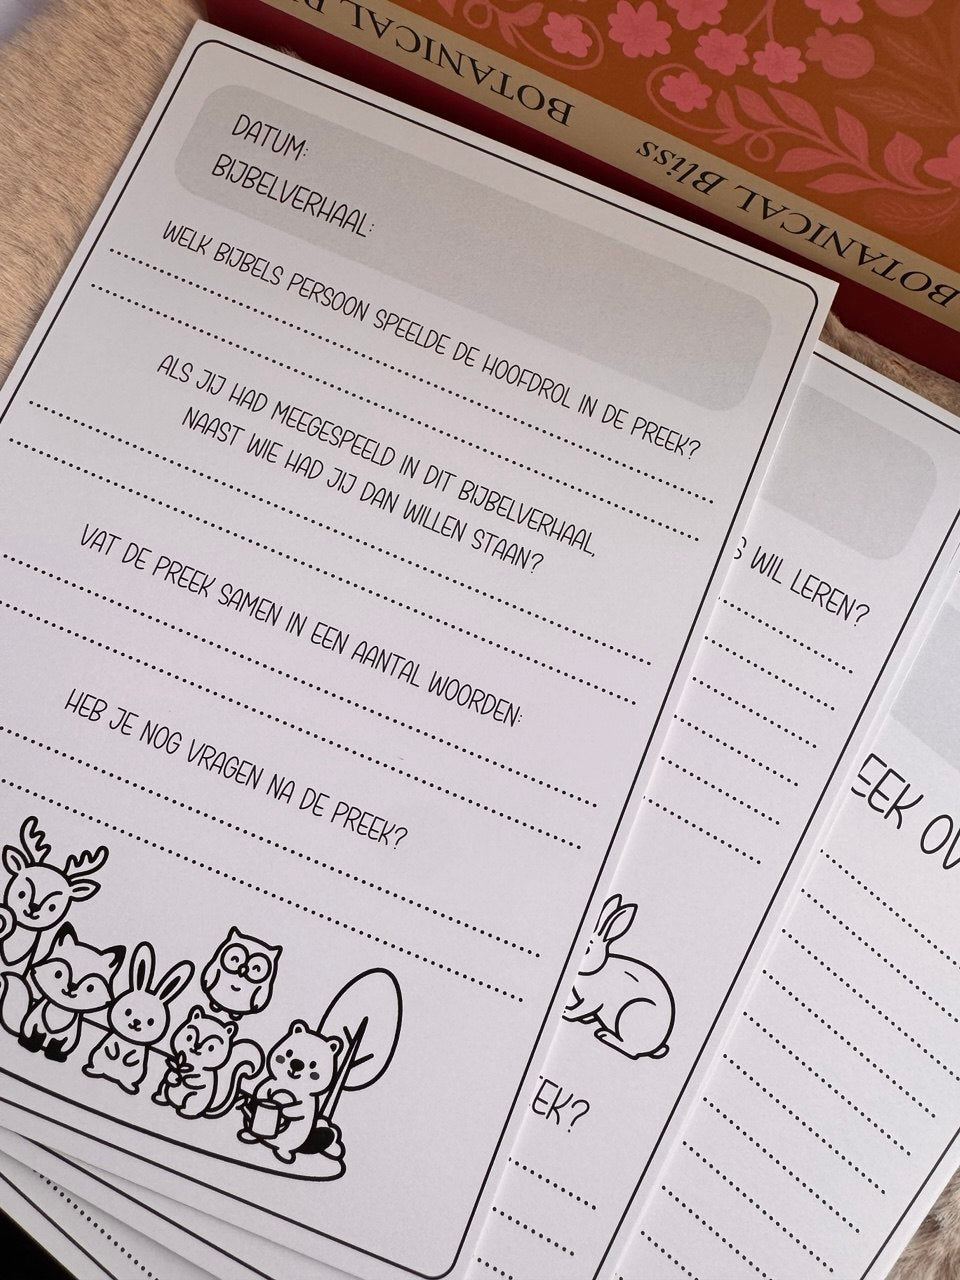 DATUM:
BIJBELVERHAAL:
WELK BIJBELS PERSOON SPEELDE DE HOOFDROL IN DE PREEK?
ALS JIJ HAD MEEGESPEELD IN DIT BIJBELVERHAAL,
NAAST WIE HAD JIJ DAN WILLEN STAAN?
VAT DE PREEK SAMEN IN EEN AANTAL WOORDEN:
HEB JE NOG VRAGEN NA DE PREEK?
WIL LEREN?
BOTANICAL
BOTANICAL Bliss
BOTANICAL